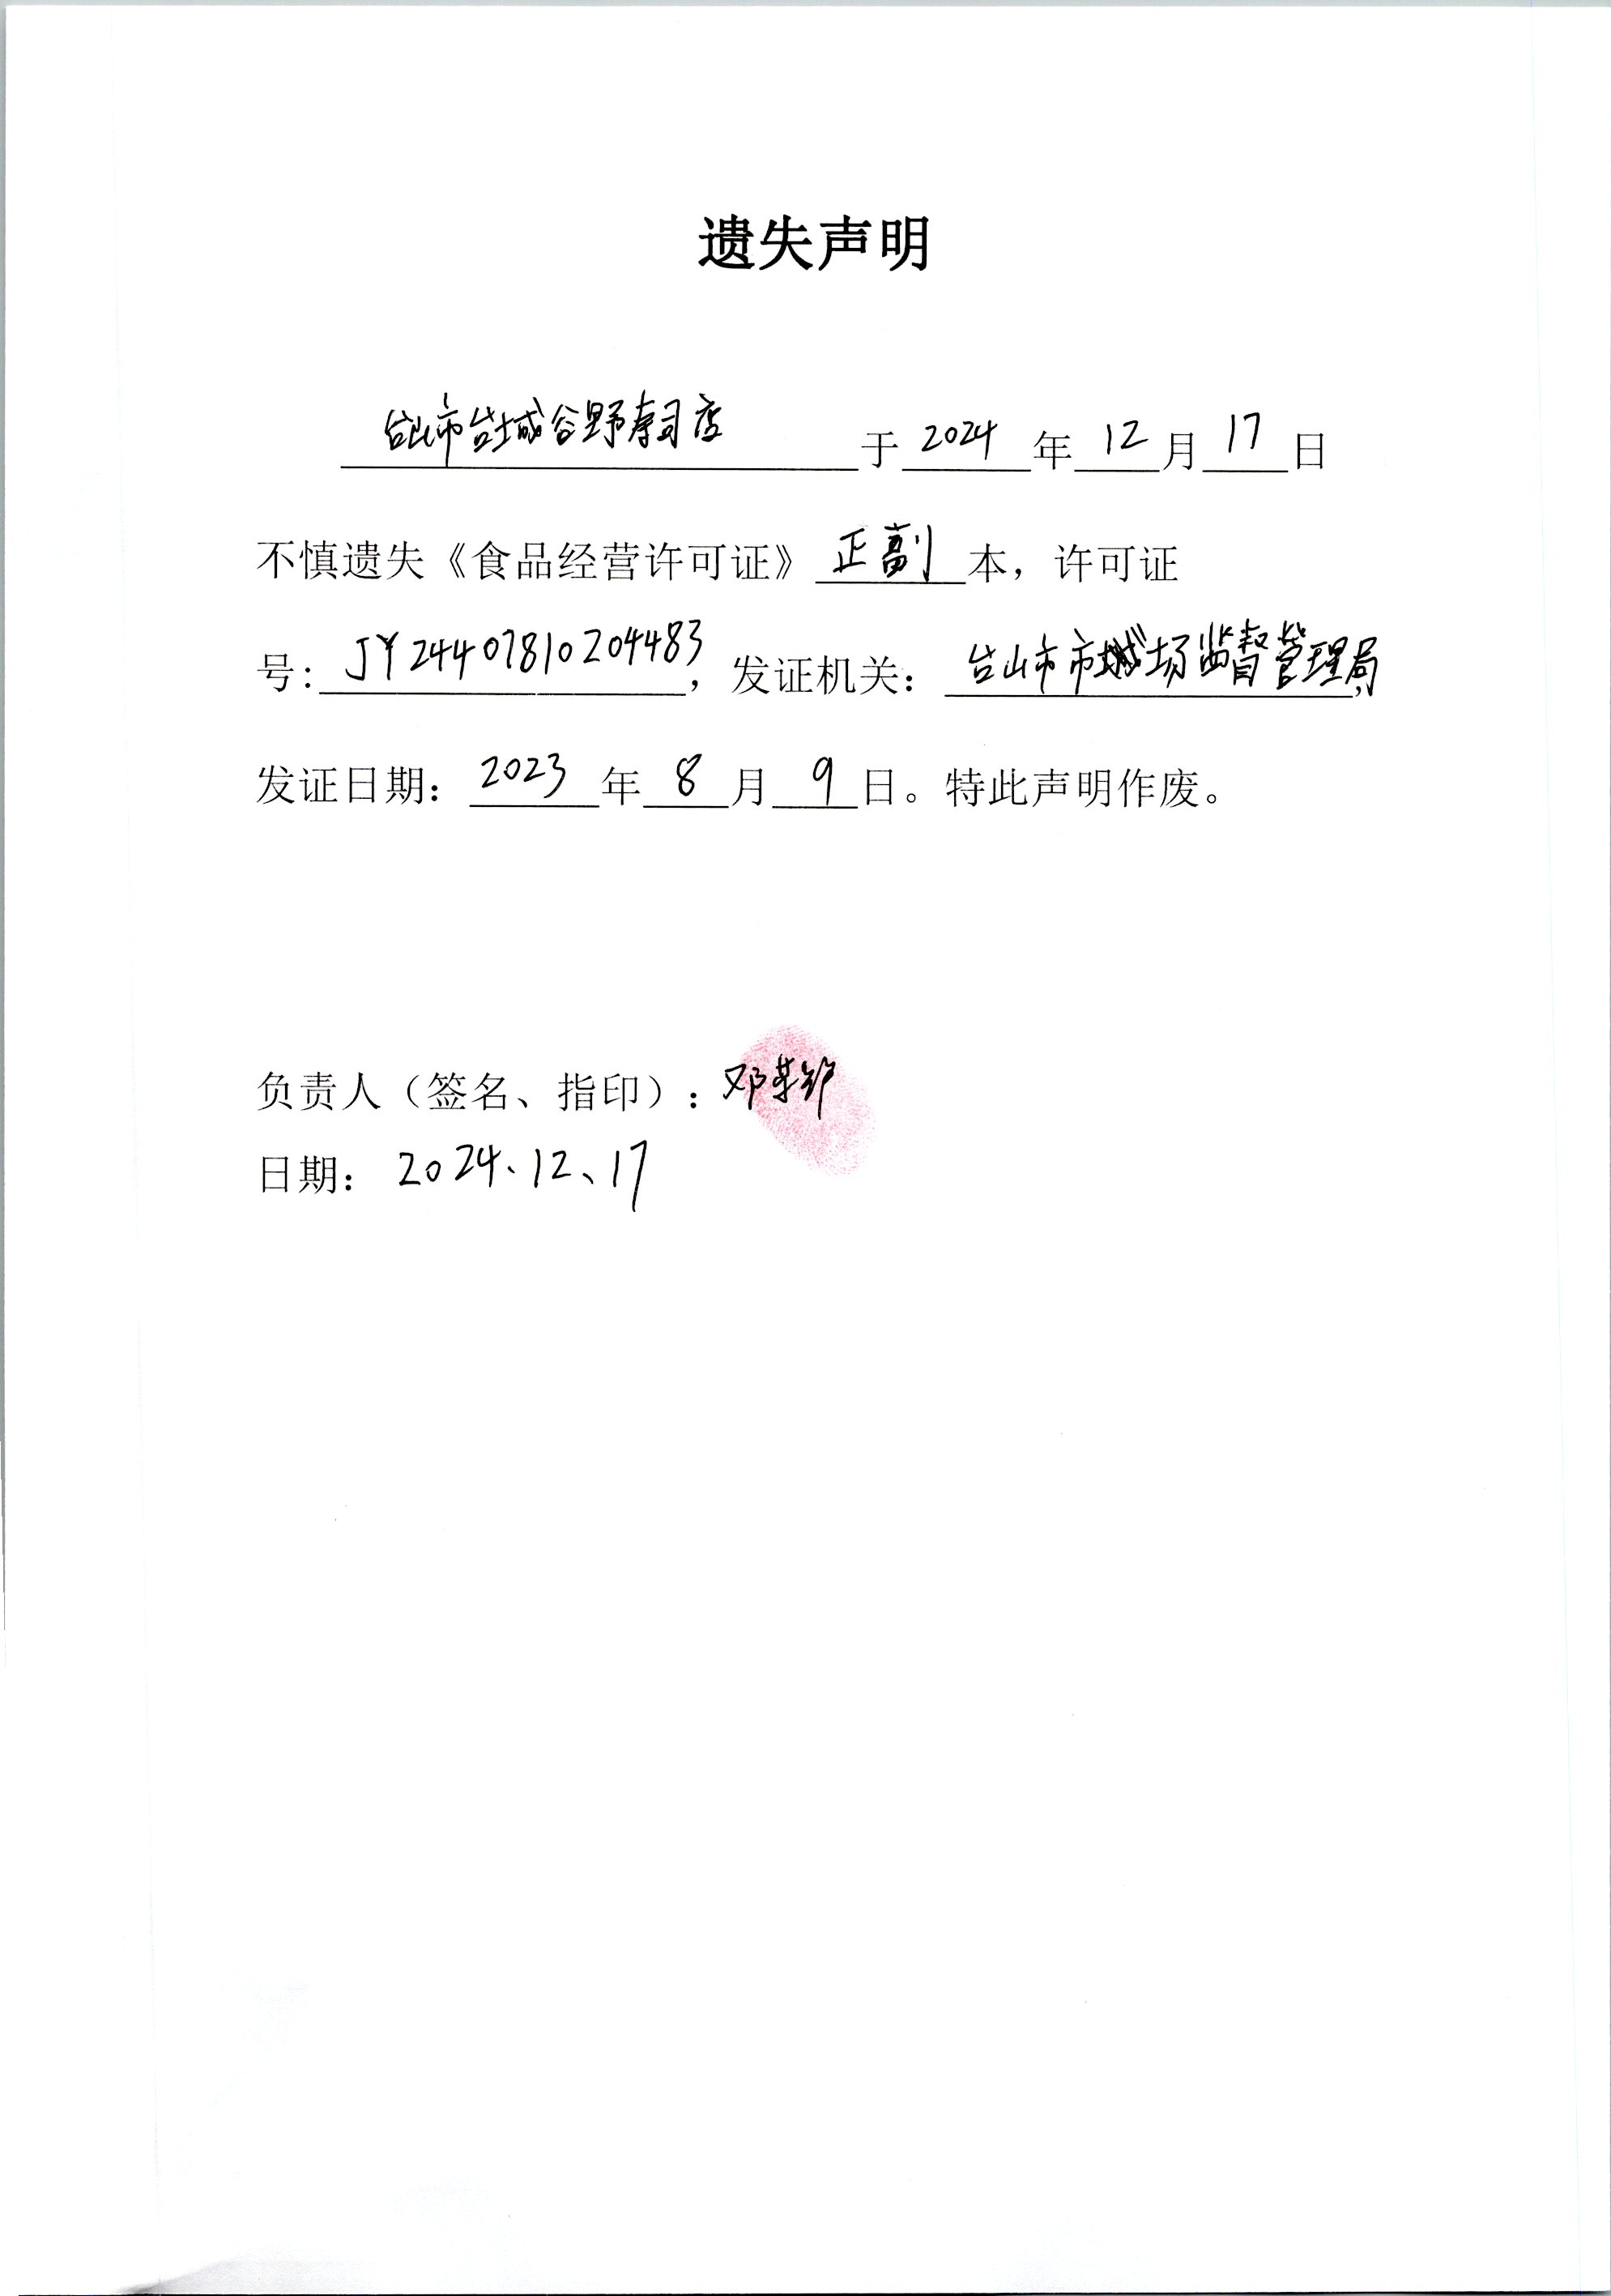 遗失声明
台山市台城谷野寿司店于2024年12月17日
不慎遗失《食品经营许可证》正副本，许可证
号：JY24407810204483，发证机关：台山市市场监督管理局，
发证日期：2023年8月9日。特此声明作废。
负责人（签名、指印）：邓
日期：2024、12、17